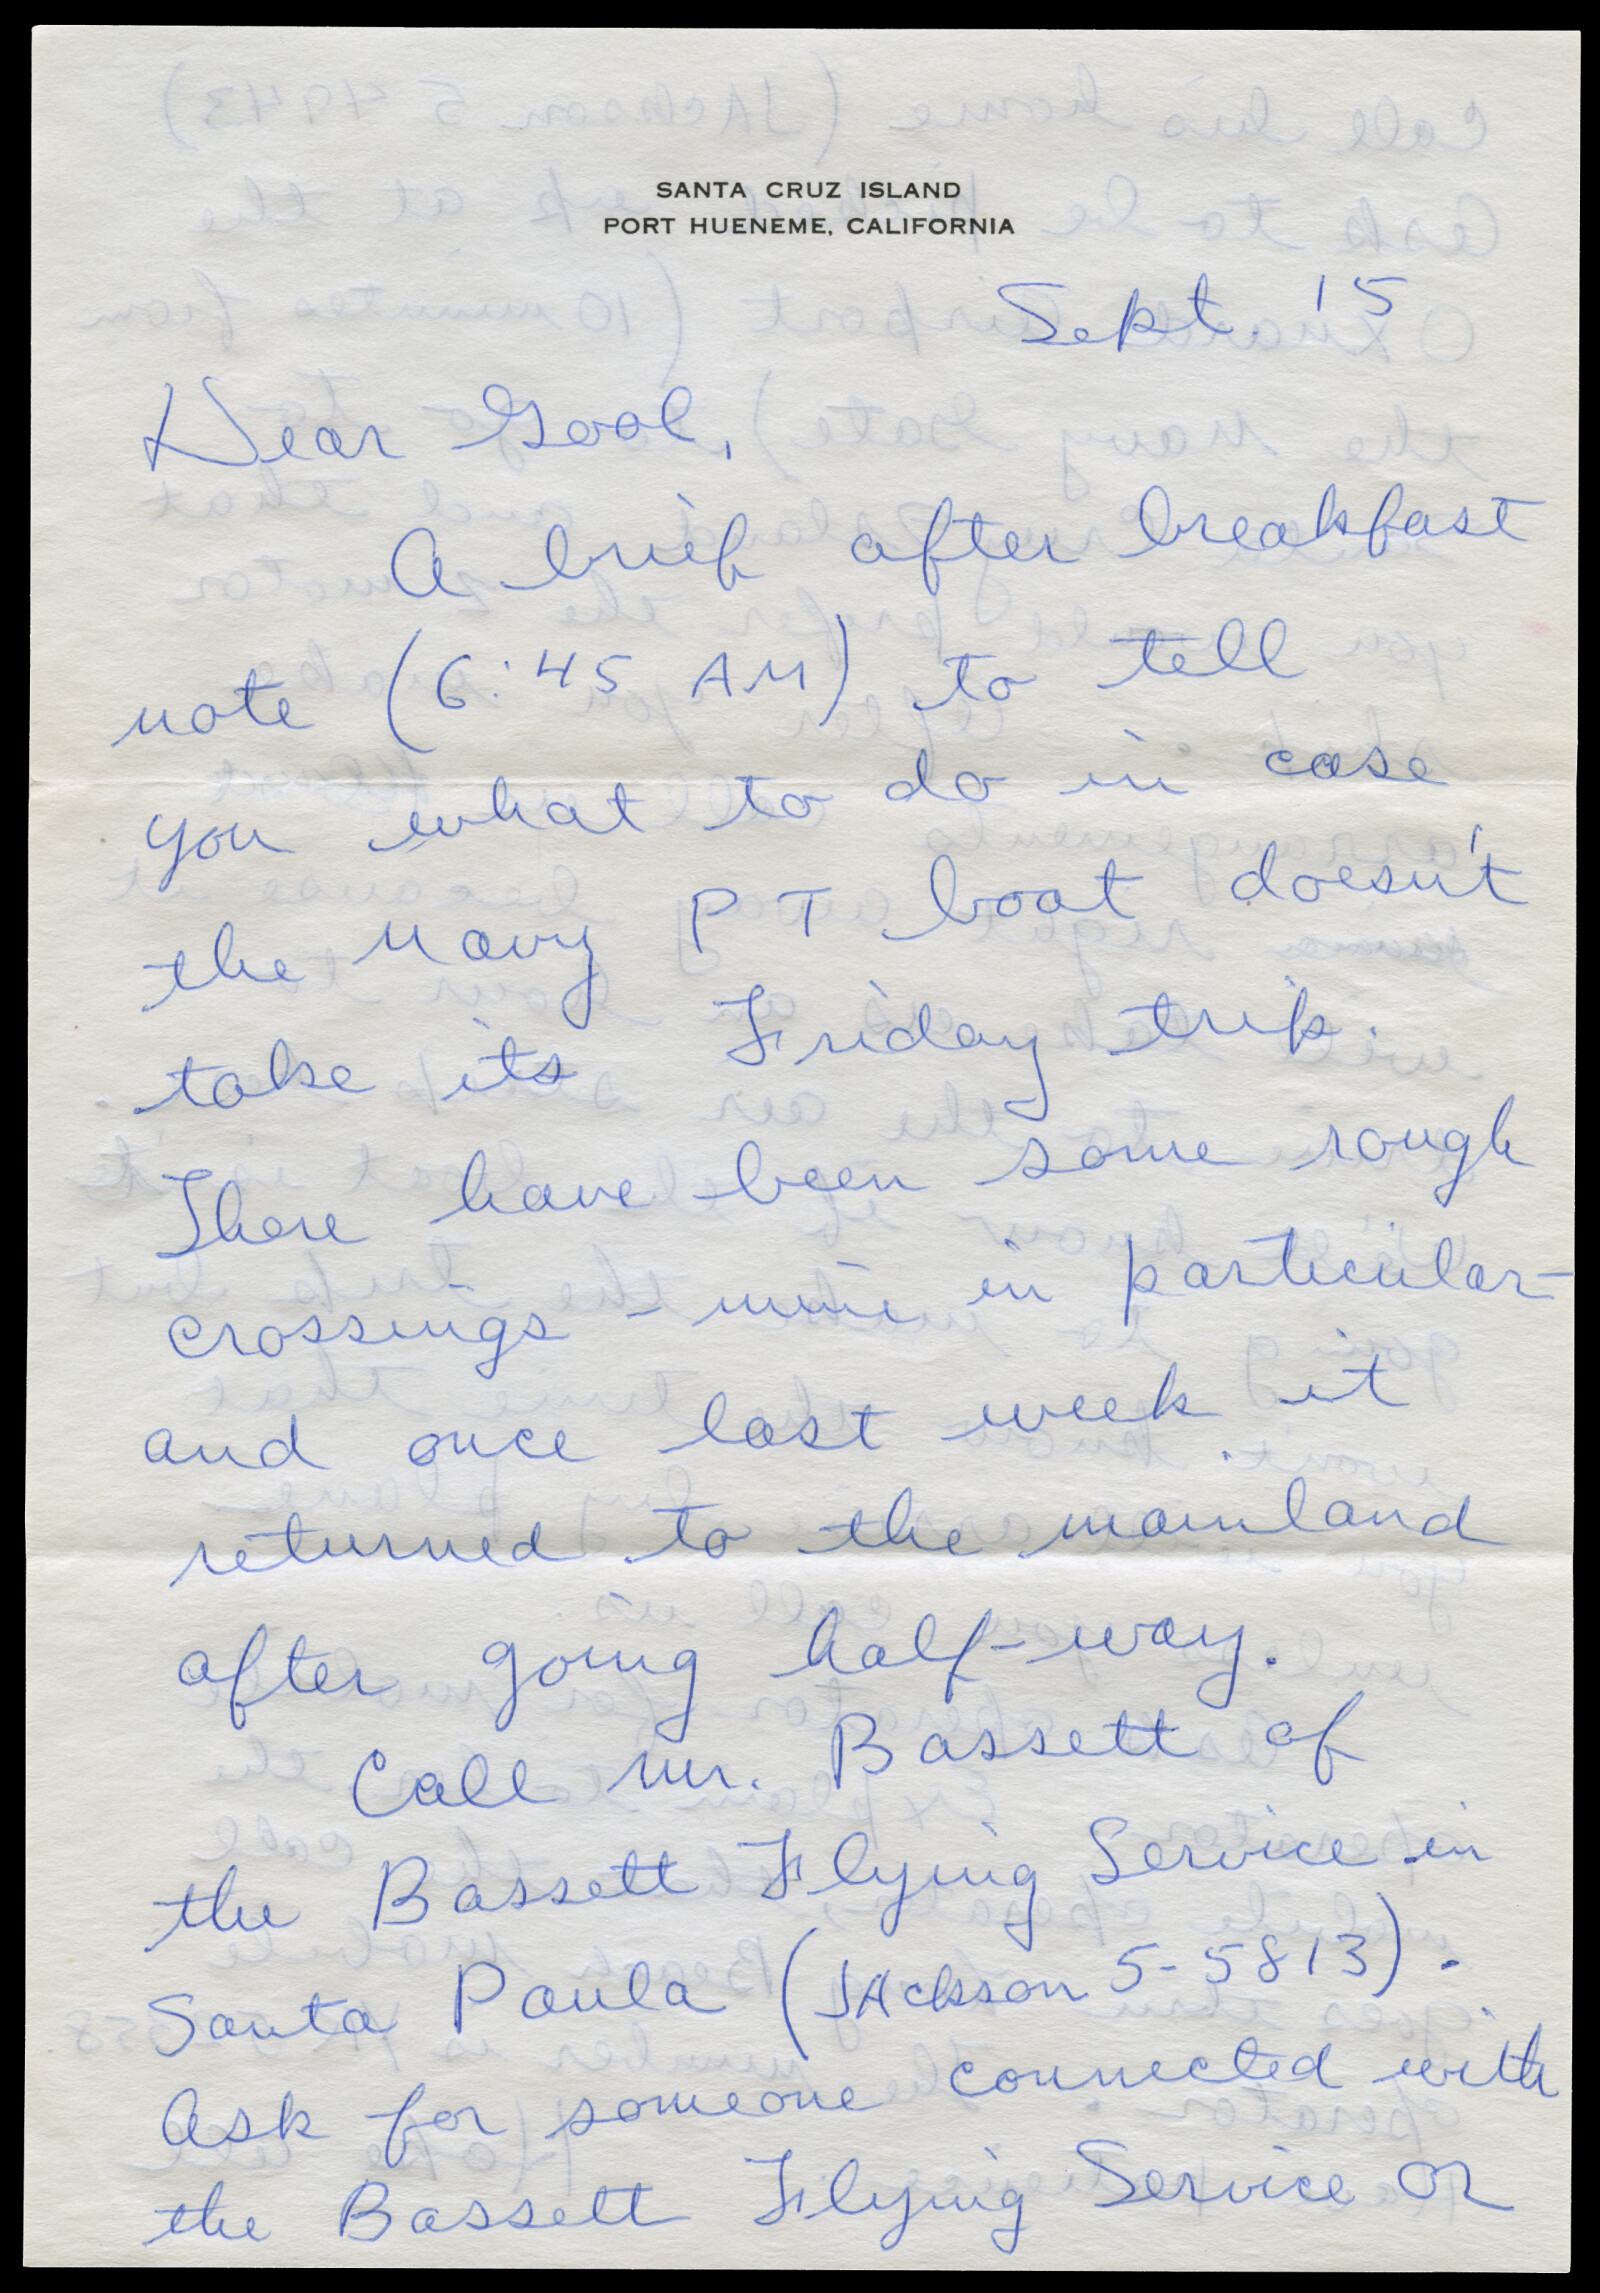 SANTA CRUZ ISLAND
PORT HUENEME, CALIFORNIA
Sept. 15
Dear Gool,
A brief after breakfast
note (6:45 AM) to tell
you what to do in case
the Navy PT boat doesn't
take its Friday trip.
There have been some rough
crossings - mine in particular -
and once last week it
returned to the mainland
after going half-way.
Call Mr. Bassett of
the Bassett Flying Service in
Santa Paula (JAckson 5-5813).
Ask for someone connected with
the Bassett Flying Service or